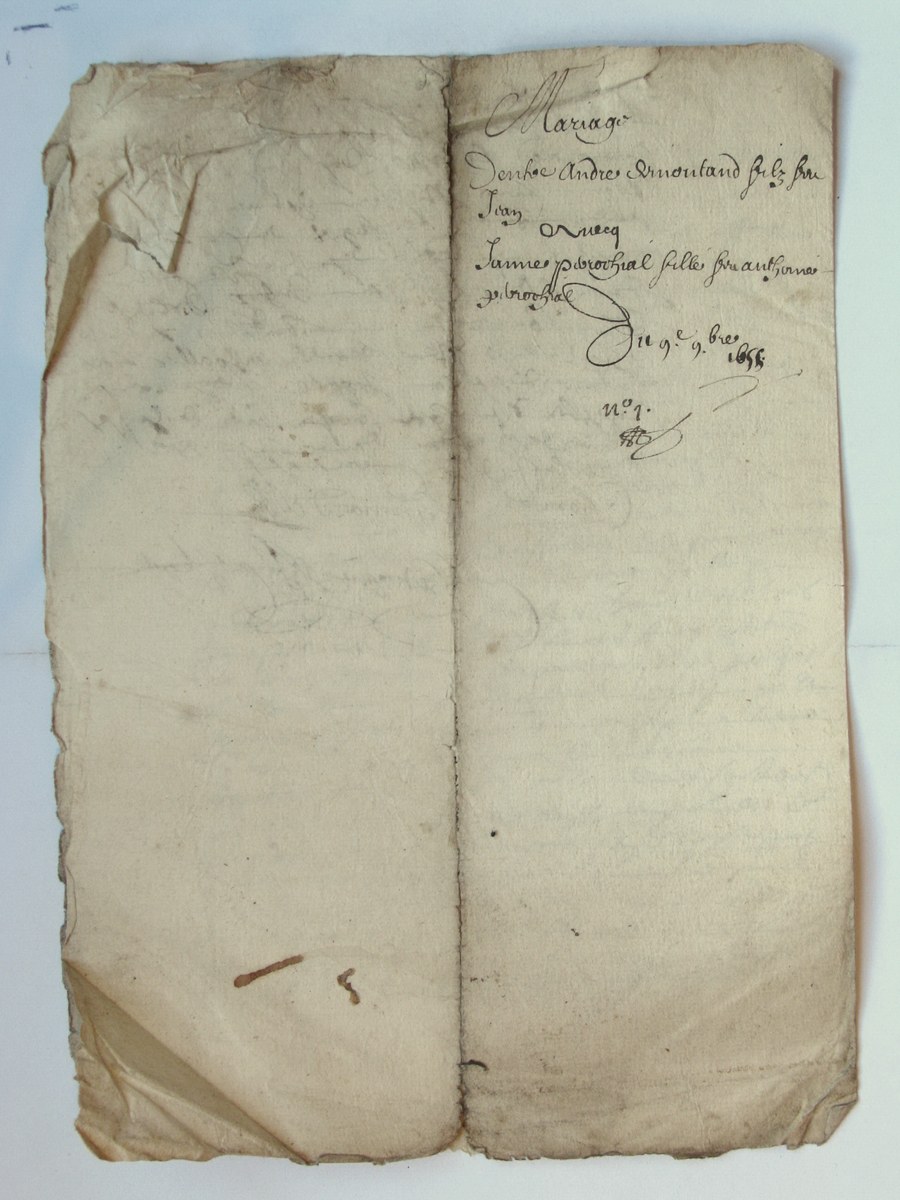 Mariage
Dentre Andre Esmontand filz feu
Jean
Avecq
Janne perochial fille feu anthoine
perochial
Du 9e 9.bre
1655
no. 1.